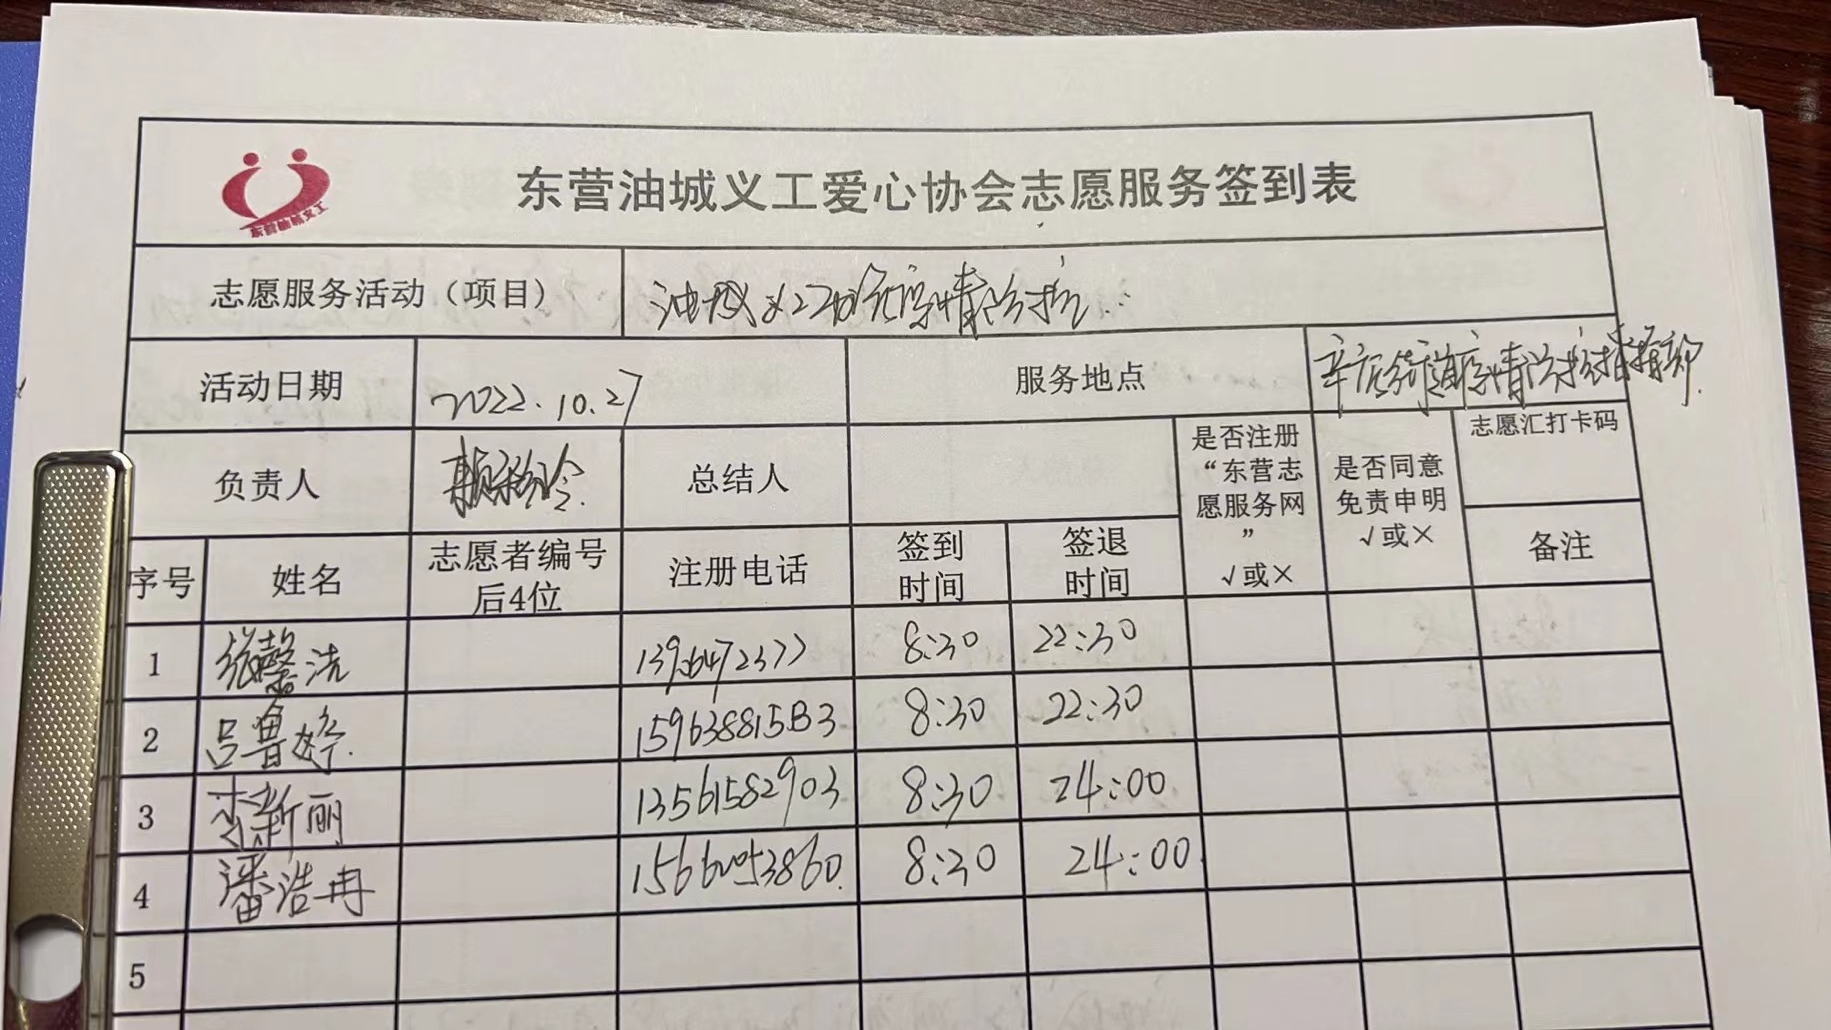 东营油城义工
东营油城义工爱心协会志愿服务签到表
志愿服务活动（项目） 油城义工助力疫情防控
活动日期 2022.10.27 服务地点 辛店街道疫情防控指挥部
负责人 总结人
是否注册
“东营志
愿服务网
”
√或×
是否同意
免责申明
√或×
志愿汇打卡码
备注
序号 姓名 志愿者编号
后4位 注册电话 签到
时间 签退
时间
1 张馨洁 8:30 22:30
2 吕鲁婷 15963881513 8:30 22:30
3 李新丽 13561582903 8:30 24:00
4 潘浩冉 15660053860 8:30 24:00
5